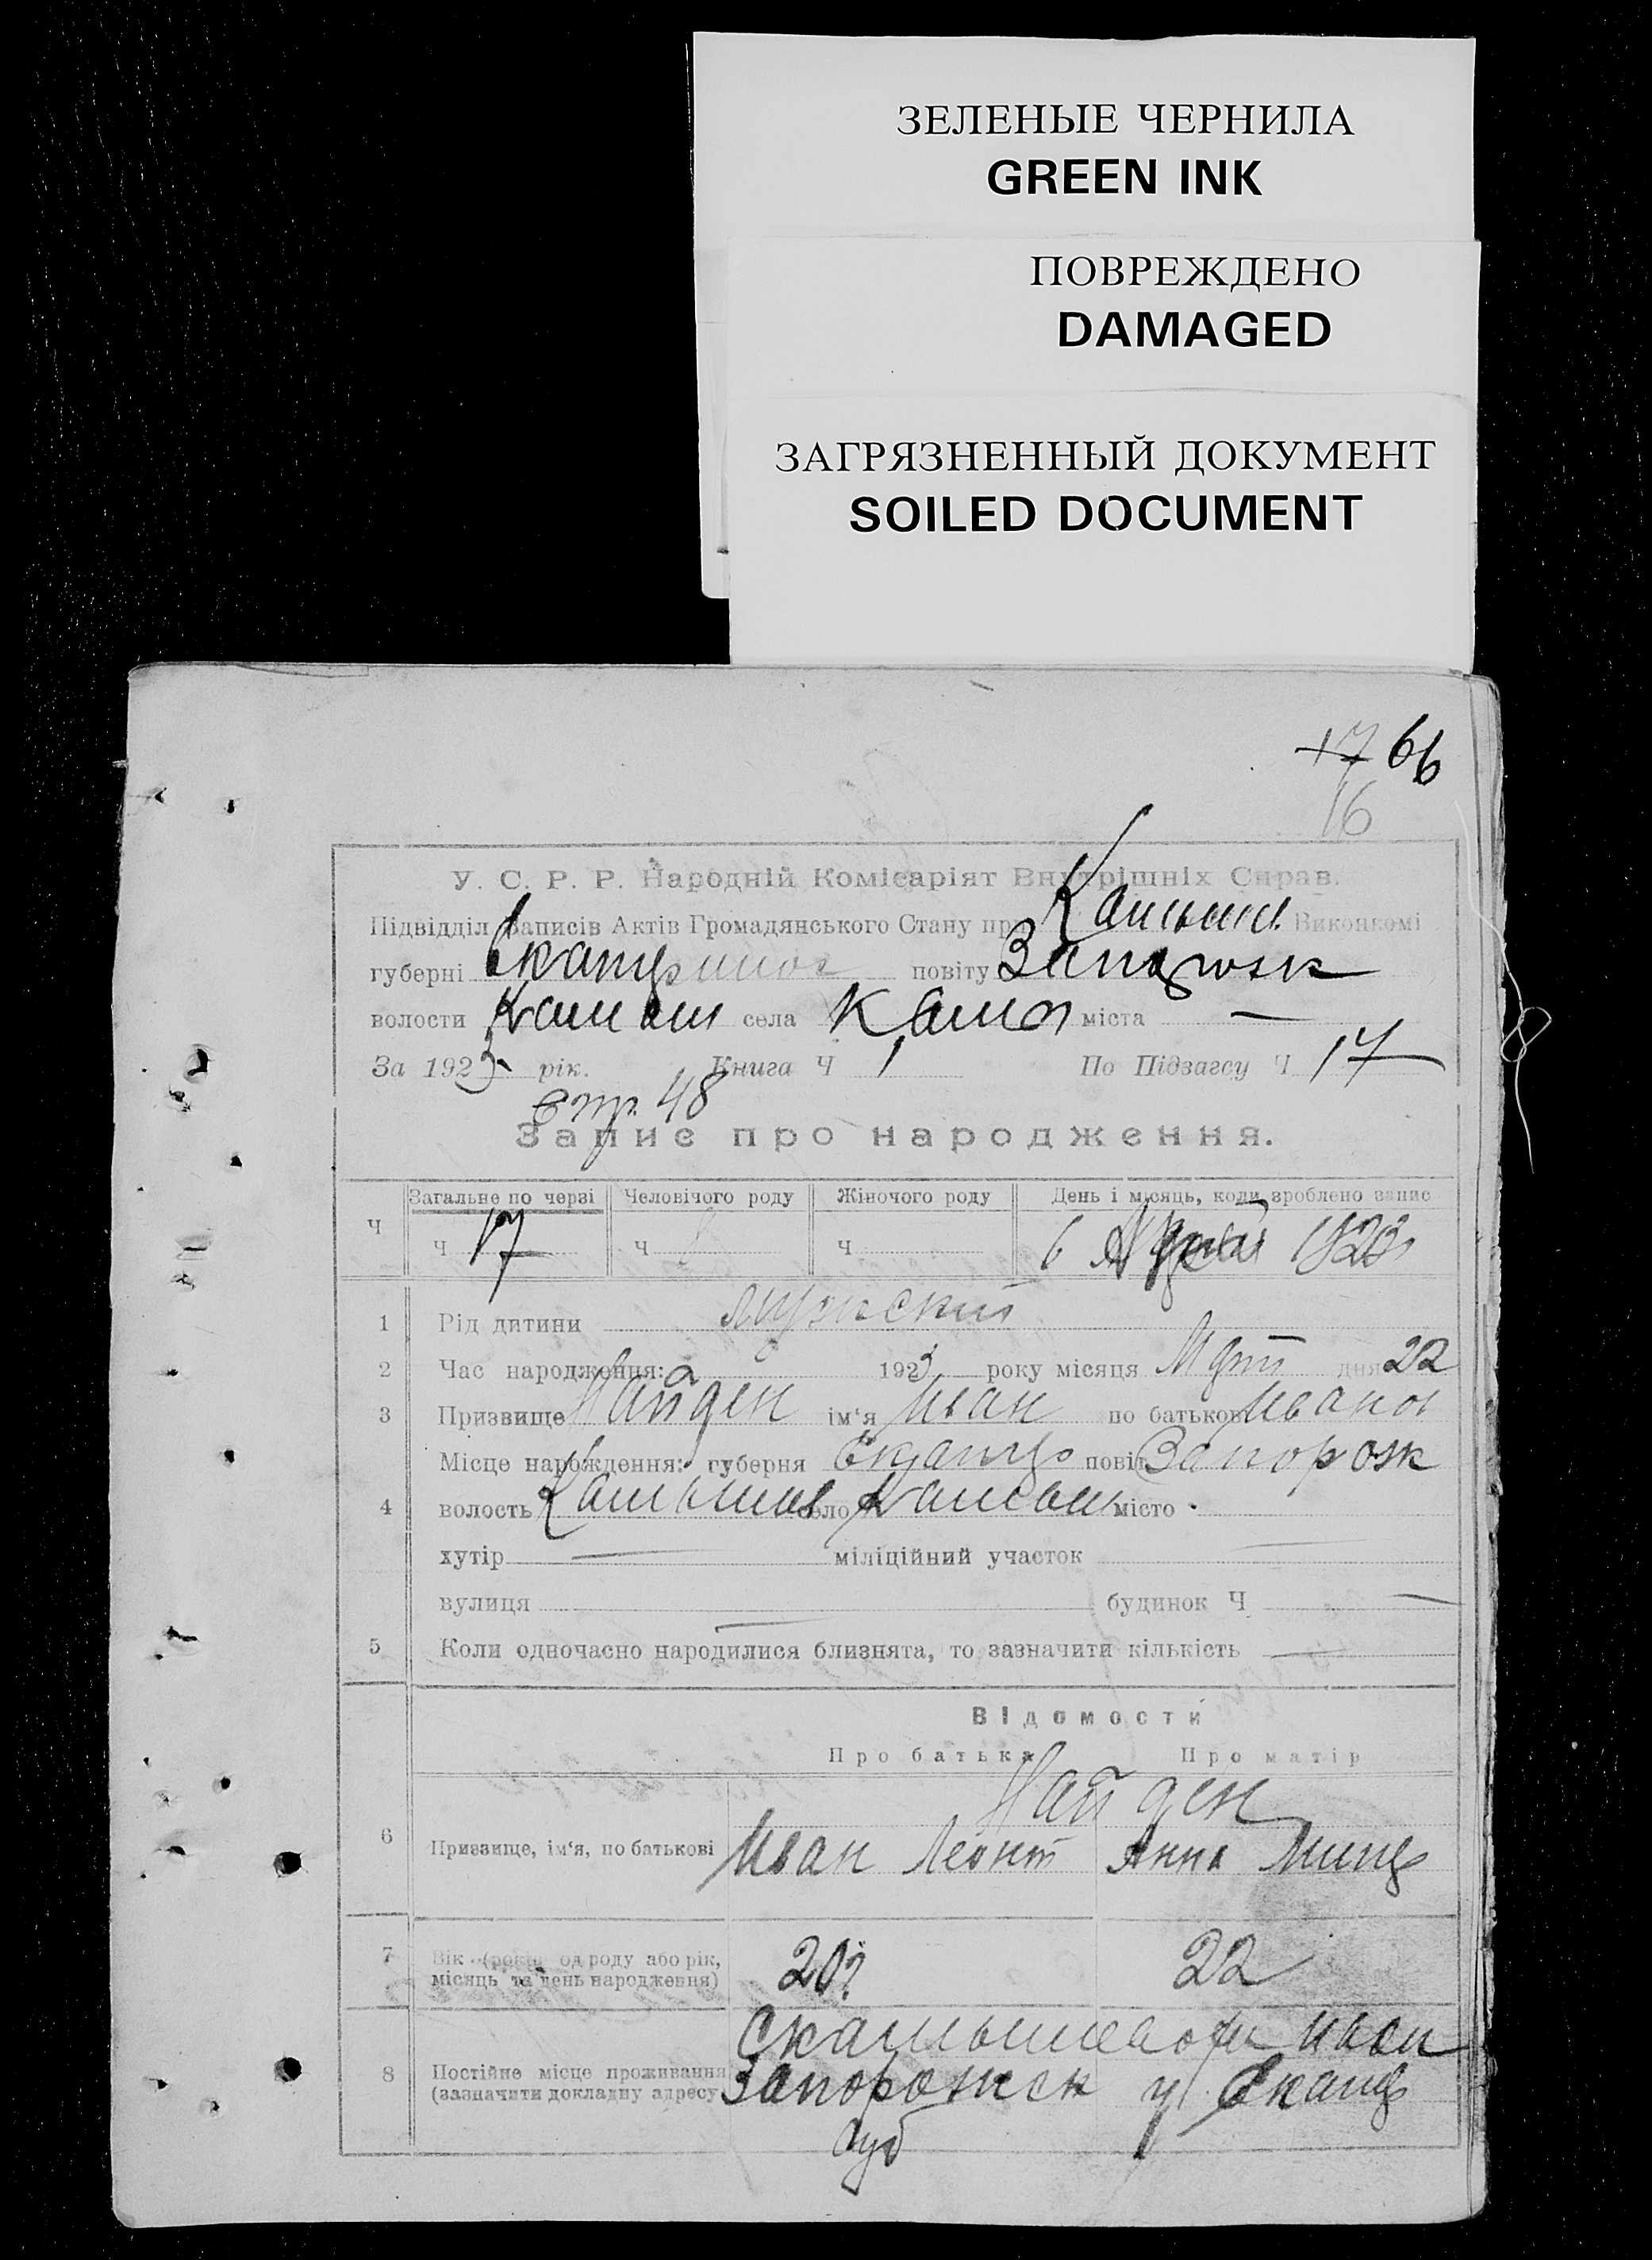 ЗЕЛЕНЫЕ ЧЕРНИЛА
GREEN INK
ПОВРЕЖДЕНО
DAMAGED
ЗАГРЯЗНЕННЫЙ ДОКУМЕНТ
SOILED DOCUMENT
17 66
16
У. С. Р. Р. Народній Комісаріят Внутрішніх Справ.
Підвідділ Записів Актів Громадянського Стану при Виконкомі
губерні повіту
волости села міста —
За 1923 рік. Книга Ч 1 По Підзагсу Ч 17
стр. 48
Запис про народження.
Ч Загальне по черзі Человічого роду Жіночого роду День і місяць, коли зроблено запис
Ч 17 Ч Ч 6 1923
1 Рід дитини мужский
2 Час народження: 1923 року місяця Март дня 22
3 Призвище Найден ім'я Иван по батькові Иванов
Місце народження: губерня Екатер повіт Запорож
4 волость село місто
хутір — міліційний участок —
вулиця — будинок Ч —
5 Коли одночасно народилися близнята, то зазначити кількість —
Відомости
Про батька Про матір
Найден
6 Призвище, ім'я, по батькові Иван Леонт Анна
7 Вік (років од роду або рік, 20 22
місяць та день народження)
8 Постійне місце проживання Запорожск у Екатер
(зазначити докладну адресу
губ